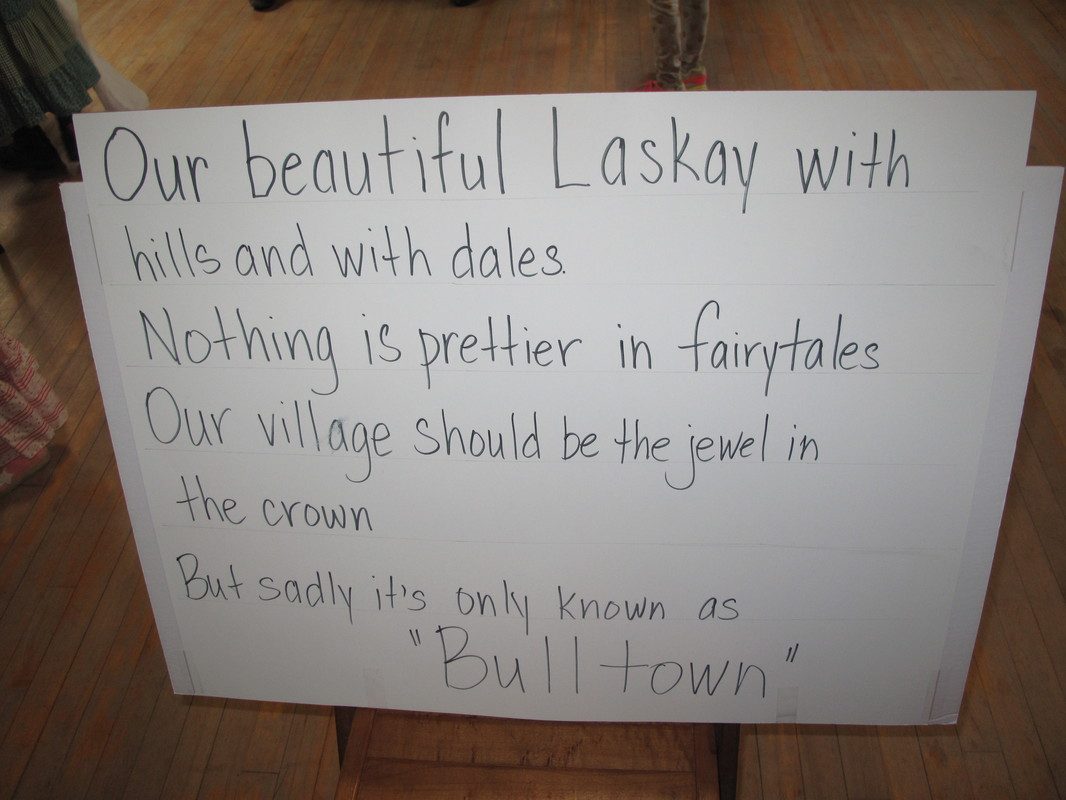 Our beautiful Laskay with
hills and with dales.
Nothing is prettier in fairytales
Our village should be the jewel in
the crown
But sadly it's only known as
"Bulltown"